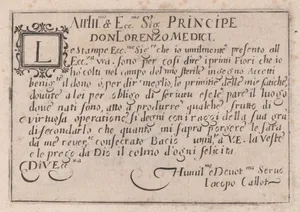 Al Ill.mo & Ecc.mo Sig. PRINCIPE
DON LORENZO MEDICI.
LE stampe Ecc.mo Sig.re che io umilmente presento all
Ecc.za vra. sono per cosi dire i primi Fiori che io
hò colti nel campo del mio sterile ingegno Accetti
benig.te il dono ò per dir meglio le primitie delle mie fatiche,
douute à lei per obligo di seruitu e se le pare il luogo
doue nati sono, atto à produrre qualche frutto di
virtuosa operatione si degni con i raggi della sua gra
di secondarlo che quanto mi saprà porgere le sarà
da me reuer.te consecrato Bacio umil.te à V.E. la Veste
e le prego da Dio il colmo d'ogni felicità
Di V. Ecc.za
Humil.mo Deuot.mo Seruo
Iacopo Callot